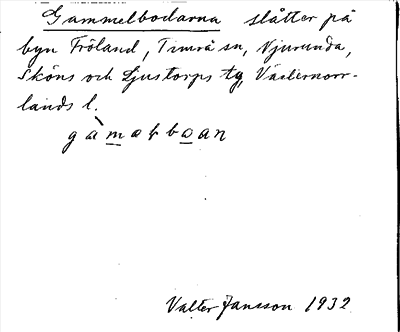 Gammelbodarna slåtter på
byn Fröland, Timrå sn, Njurunda,
Sköns och Ljustorps tg, Västernorr-
lands l.
Valter Jansson 1932